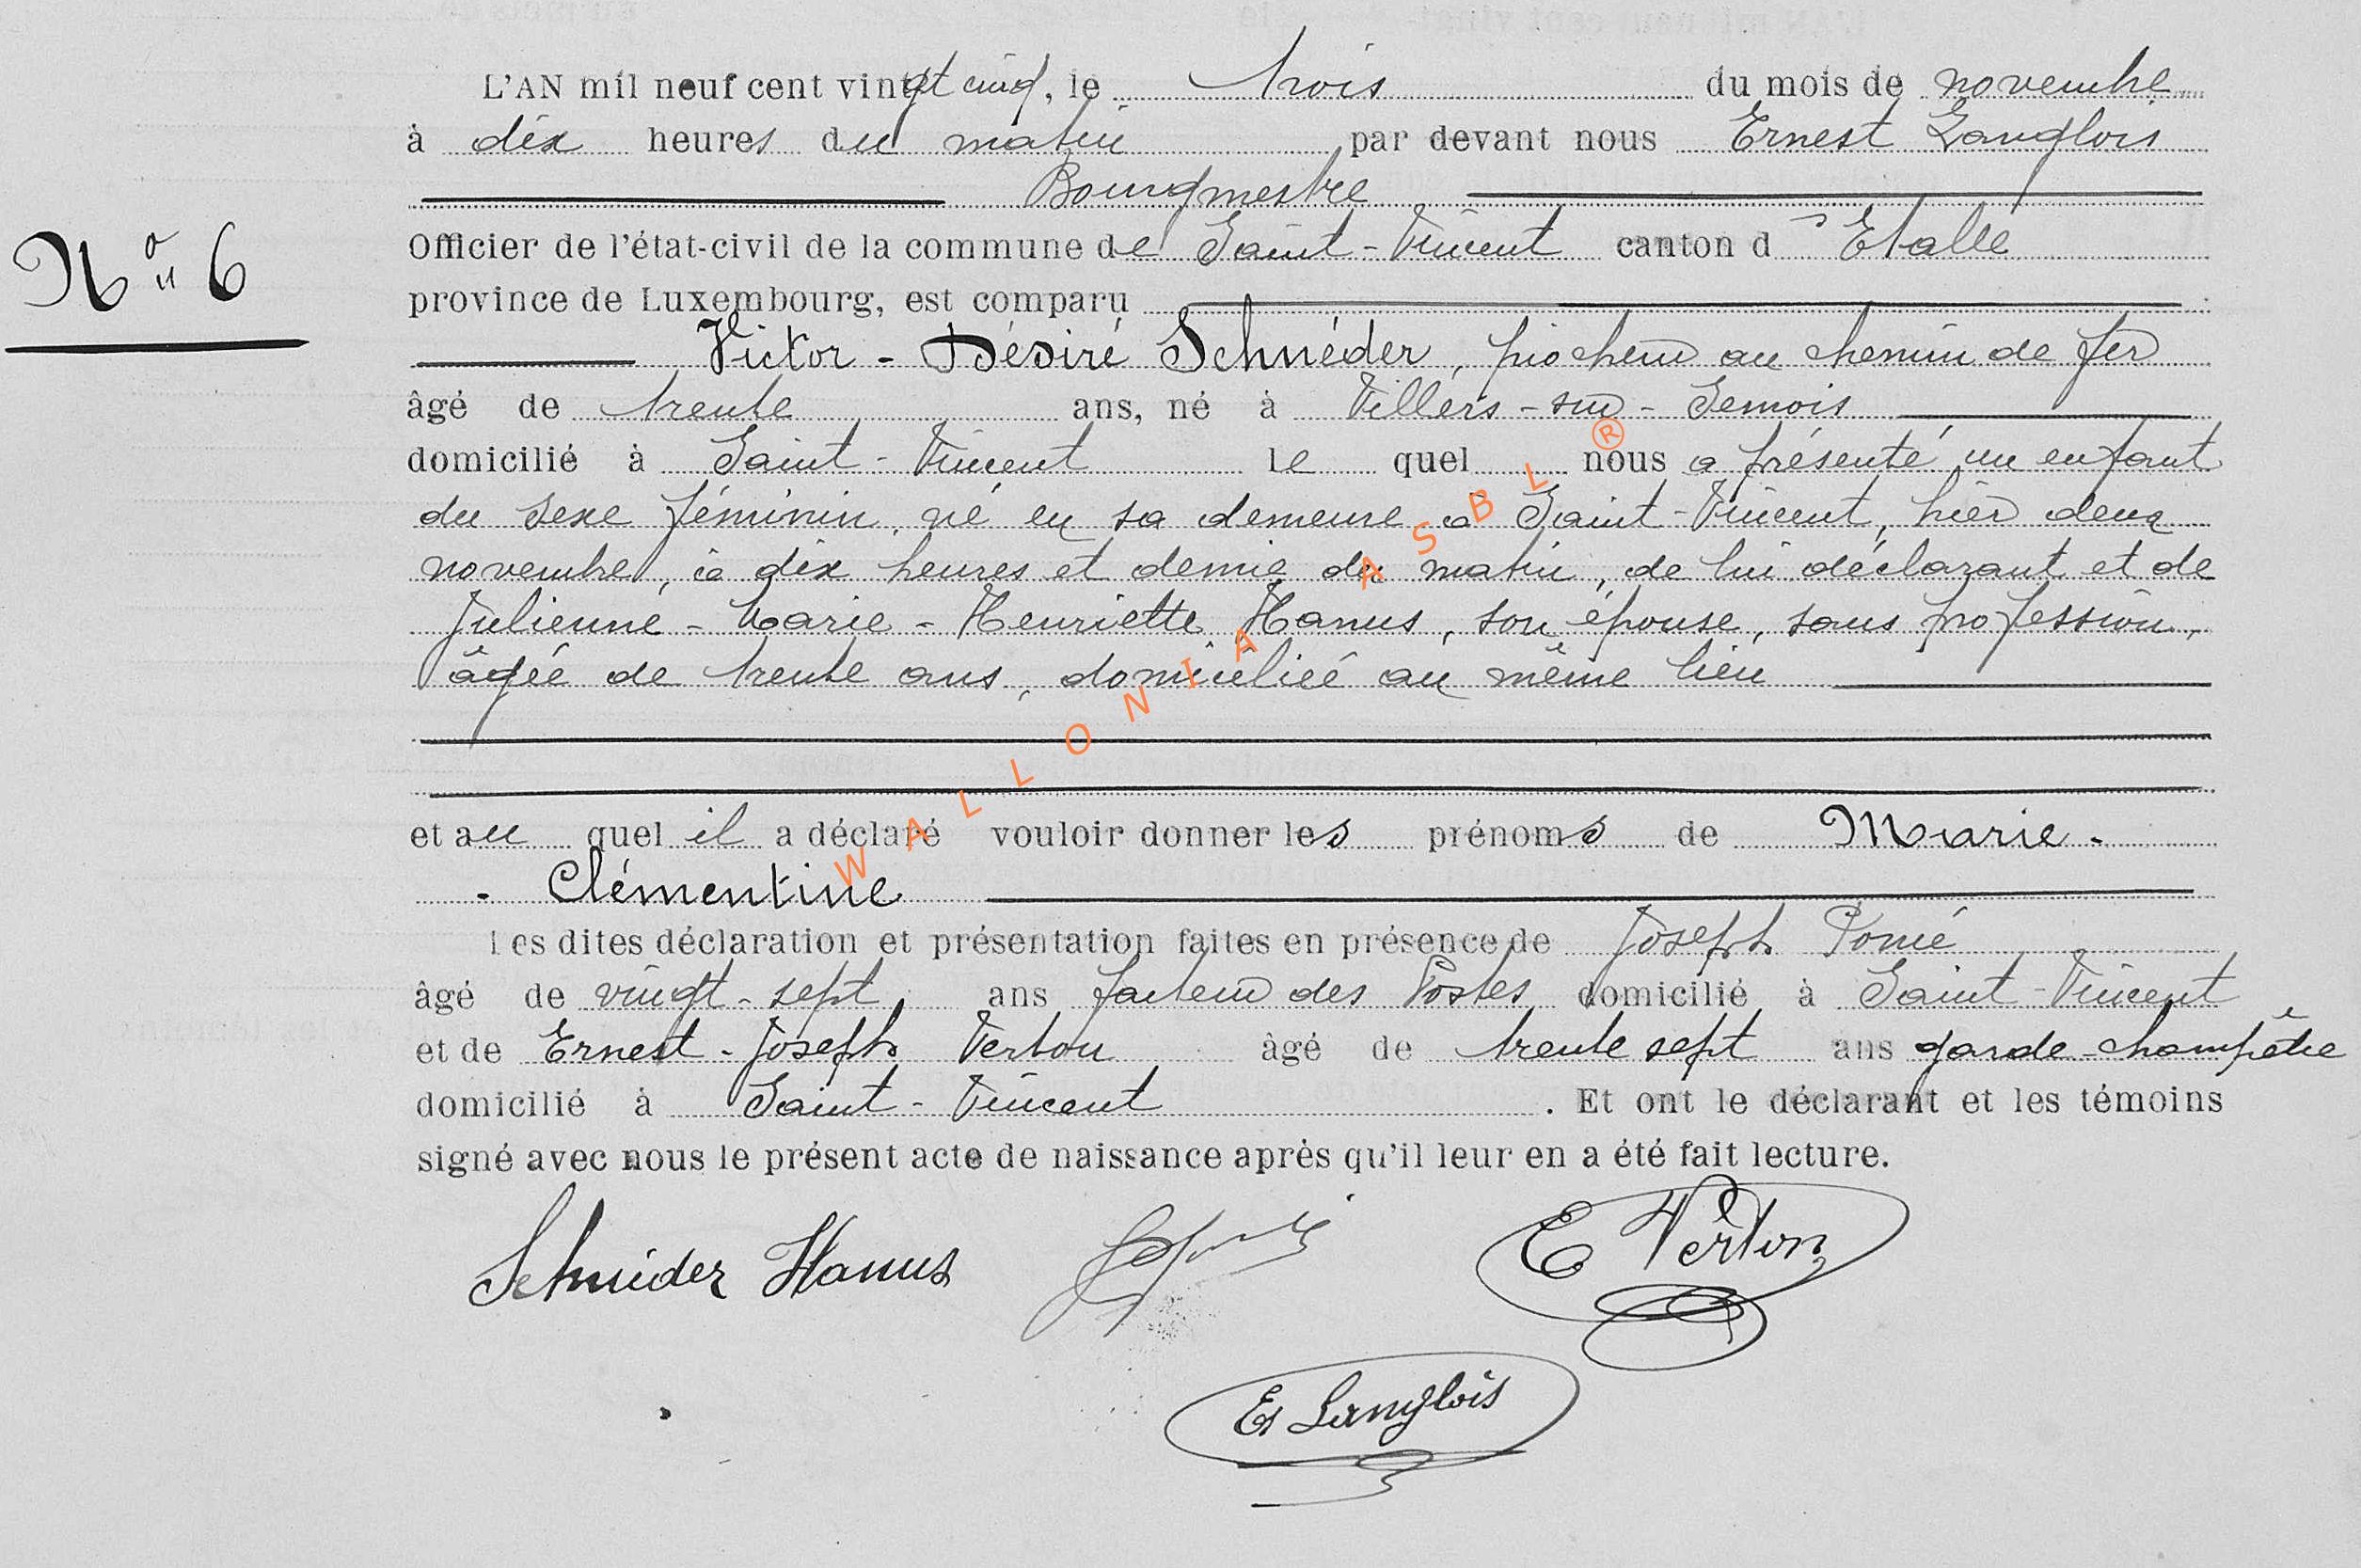 L'AN mil neuf cent vingt cinq, le trois du mois de novembre
à dix heures du matin par devant nous Ernest Langlois
Bourgmestre
Officier de l'état-civil de la commune de Saint-Vincent canton d'Etalle
N° 6
province de Luxembourg, est comparu
Victor-Désiré Schnéder, piocheur au chemin de fer
âgé de trente ans, né à Villers-sur-Semois
domicilié à Saint-Vincent lequel nous a présenté un enfant
du sexe féminin, né en sa demeure à Saint-Vincent, hier deux
novembre, à dix heures et demie du matin, de lui déclarant et de
Julienne-Marie-Henriette Hanus, son épouse, sans profession,
âgée de trente ans, domiciliée au même lieu
et auquel il a déclaré vouloir donner les prénoms de Marie-
-Clémentine
Les dites déclaration et présentation faites en présence de Joseph
âgé de vingt-sept ans facteur des Postes domicilié à Saint-Vincent
et de Ernest-Joseph Verton âgé de trente sept ans garde-champêtre
domicilié à Saint-Vincent. Et ont le déclarant et les témoins
signé avec nous le présent acte de naissance après qu'il leur en a été fait lecture.
Schnéder Hanus E Verton
Et Langlois
WALLONIA ASBL ®